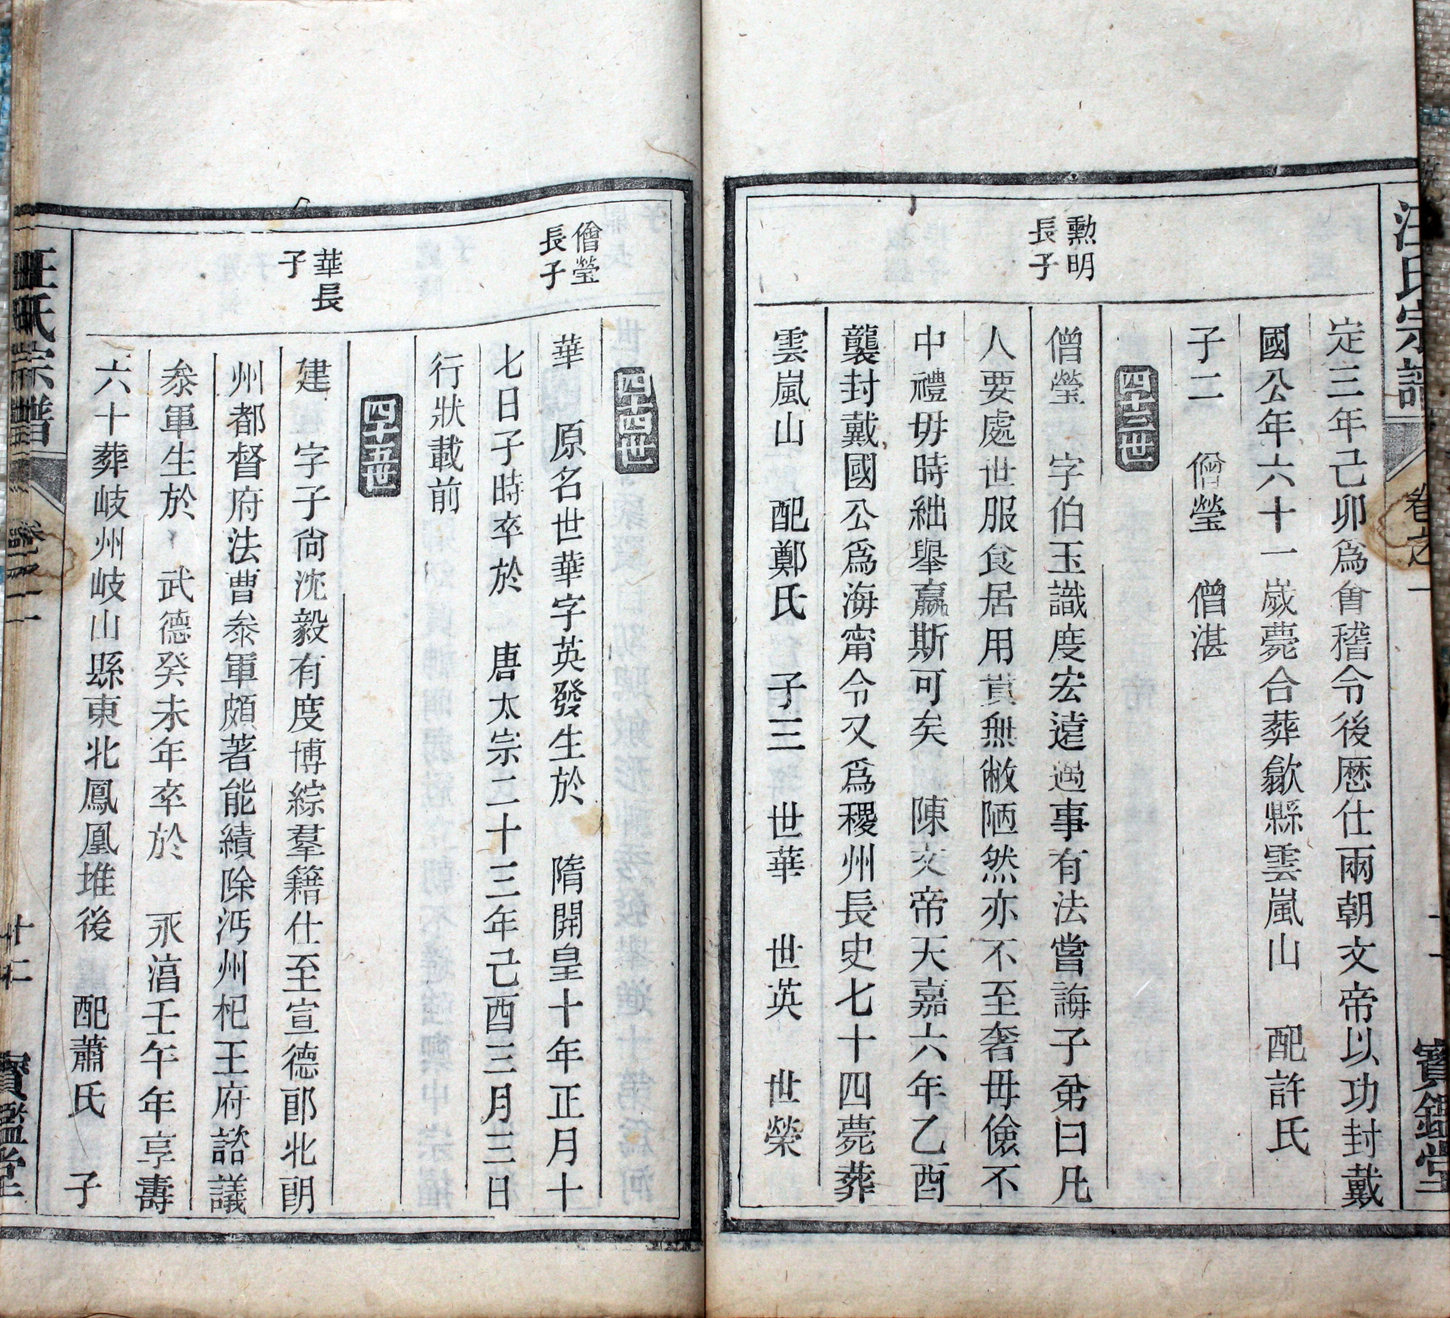 汪氏宗譜
卷之一
寶鑑堂
定三年己卯爲會稽令後歷仕兩朝文帝以功封戴
國公年六十一歲薨合葬歙縣雲嵐山 配許氏
子二 僧瑩 僧湛
四十三世
勳明長子
僧瑩 字伯玉識度宏遠遇事有法嘗誨子弟曰凡
人要處世服食居用貴無敝陋然亦不至奢毋儉不
中禮毋時絀舉嬴斯可矣 陳文帝天嘉六年乙酉
襲封戴國公爲海甯令又爲稷州長史七十四薨葬
雲嵐山 配鄭氏 子三 世華 世英 世榮
四十四世
僧瑩長子
華 原名世華字英發生於 隋開皇十年正月十
七日子時卒於 唐太宗二十三年己酉三月三日
行狀載前
四十五世
華長子
建 字子尙沈毅有度博綜羣籍仕至宣德郎北朗
州都督府法曹叅軍頗著能績除沔州杞王府諮議
叅軍生於 武德癸未年卒於 永滔壬午年享壽
六十葬岐州岐山縣東北鳳凰堆後 配蕭氏 子
汪氏宗譜
十二
寶鑑堂